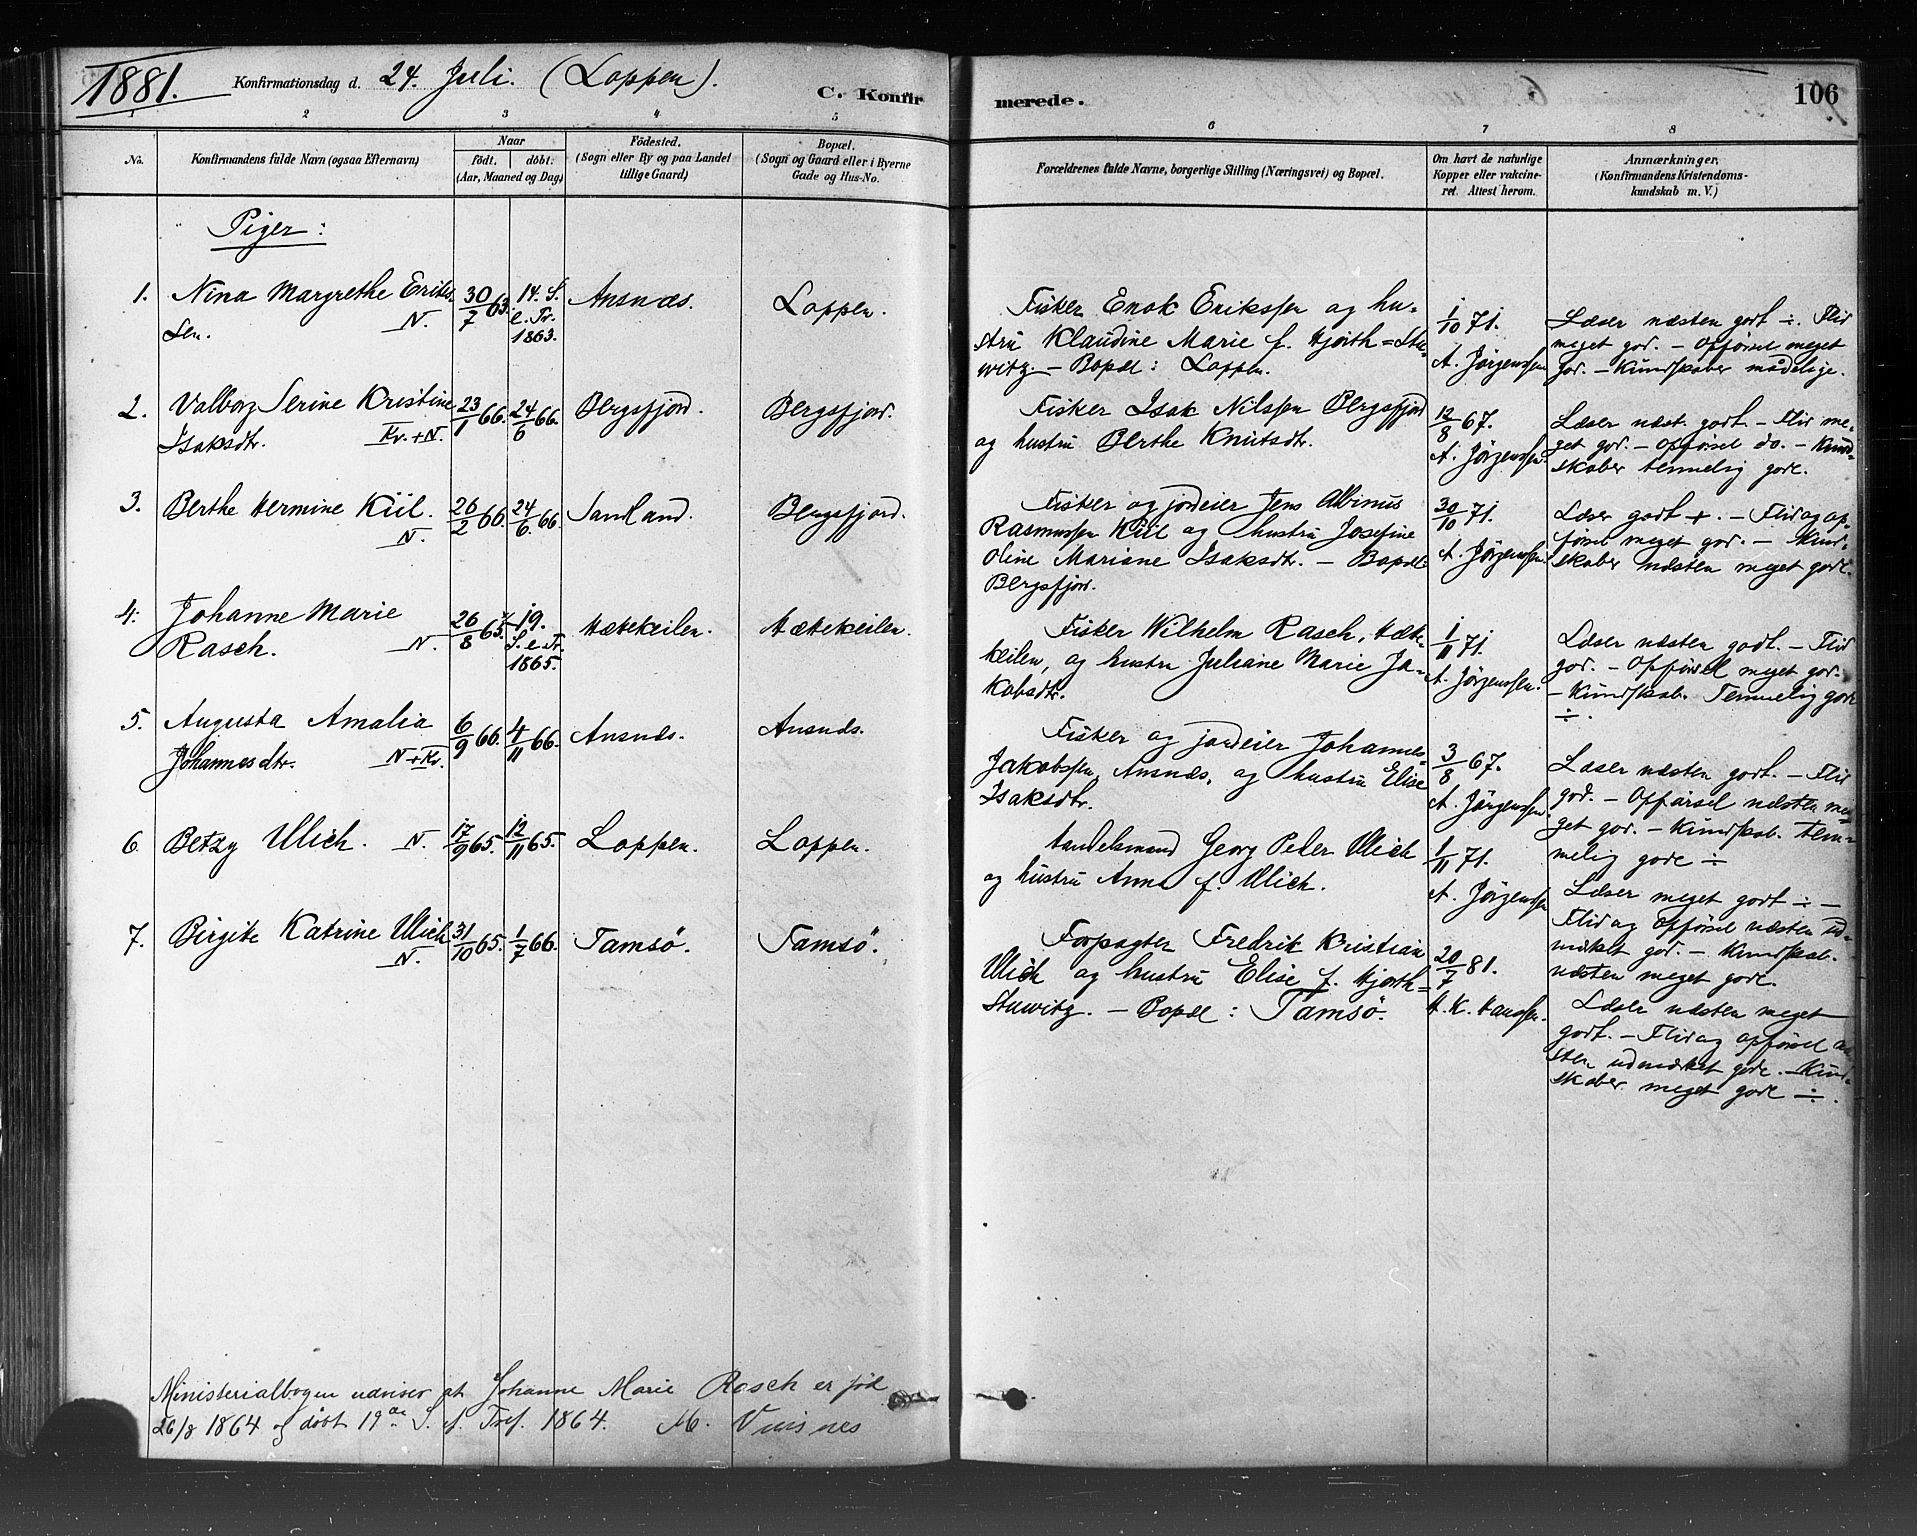 1881. Konfirmationsdag d. 24. Juli. (Loppen). C. Konfirmerede. 106
1 2 3 4 5 6 7 8
No. Konfirmandens fulde Navn (ogsaa Efternavn)
Naar
født. døbt.
(Aar, Maaned og Dag)
Fødested.
(Sogn eller By og paa Landet
tillige Gaard)
Bopæl.
(Sogn og Gaard eller i Byerne
Gade og Hus-No.
Forældrenes fulde Navne, borgerlige Stilling (Næringsvei) og Bopæl.
Om havt de naturlige
Kopper eller vakcine-
ret. Attest herom.
Anmærkninger.
(Konfirmandens Kristendoms-
kundskab m. V.)
Piger:
1. Nina Margrethe Erik
sen. N.
30/7 63. 14. S.
e. Tr.
1863.
Ansnæs. Loppen.
Fisker Enok Erikssen og hu-
stru Klaudine Marie f. Hjorth=Stu-
witz. – Bopæl: Loppen.
1/10 71.
A. Jørgenssen
Læser næsten godt ÷. Flid
meget god. – Opførsel meget
god. – Kundskaber mådelige.
2. Valborg Serine Kristine
Isaksdtr. Kv.+N.
23/1 66. 24/6 66. Bergsfjord. Bergsfjord.
Fisker Isak Nilssen Bergsfjord
og hustru Berthe Knutsdtr.
12/8 67.
A. Jørgenssen.
Læser næst. godt. – Flid me-
get god. – Opførsel do. – Kund-
skaber temmelig gode.
3. Berthe Hermine Kiil.
N.
26/2 66. 24/6. 66. Sandland. Bergsfjord.
Fisker og jordeier Jens Albinus
Rasmussen Kiil og hustru Josefine
Oline Mariane Isaksdtr. – Bopæl:
Bergsfjord.
30/10 71.
A. Jørgenssen.
Læser godt +. – Flid og op-
førsel meget god. – Kund-
skaber næsten meget gode.
4. Johanne Marie
Rasch. N.
26/8 65. 19.
S. e. Tr.
1865.
Hækekeilen. Hækekeilen.
Fisker Wilhelm Rasch, Hæke-
keilen, og hustru Juliane Marie Ja-
kobsdtr.
1/11 71.
A. Jørgenssen.
Læser næsten godt. – Flid
god. – Opførsel meget god.
– Kundskab. Temmelig gode
÷.
5. Augusta Amalia
Johannesdtr. N+Kv.
6/9 66. 4/11 66. Ansnæs. Ansnæs.
Fisker og jordeier Johannes
Jakobssen, Ansnæs, og hustru Elise
Isaksdtr.
3/8 67.
A. Jørgenssen
Læser næsten godt. – Flid
god. – Opførsel næsten me-
get god. – Kundskab. tem-
melig gode ÷
6. Betzy Ulich. N.
17/9 65. 12/11 65. Loppen. Loppen.
Handelsmand Georg Peder Ulich
og hustru Anna f. Ulich.
1/11 71.
A. Jørgenssen
Læser meget godt ÷ –
Flid og opførsel næsten ud-
mærket god. – Kundskab.
næsten meget gode.
7. Birgite Katrine Ulich
N.
31/10 65. 1/7 66. Tamsø. Tamsø.
Forpagter Fredrik Kristian
Ulich og hustru Elise f. Hjorth=
Stuwitz. – Bopæl: Tamsø.
20/7 81.
H. K. Hanssen.
Læser næsten meget
godt. – Flid og opførsel næ-
sten udmærket gode. – Kund-
skaber meget gode ÷.
Ministerialbogen udviser at Johanne Marie Rasch er fød
26/8 1864 og døbt 19de S. ef. Tref. 1864. M.